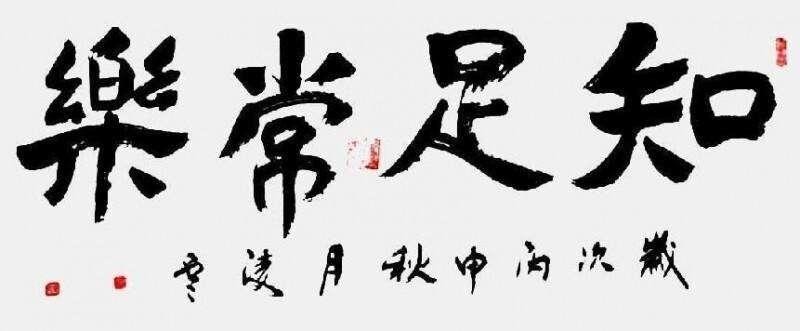 知足常樂
歲次丙申秋月凌雲